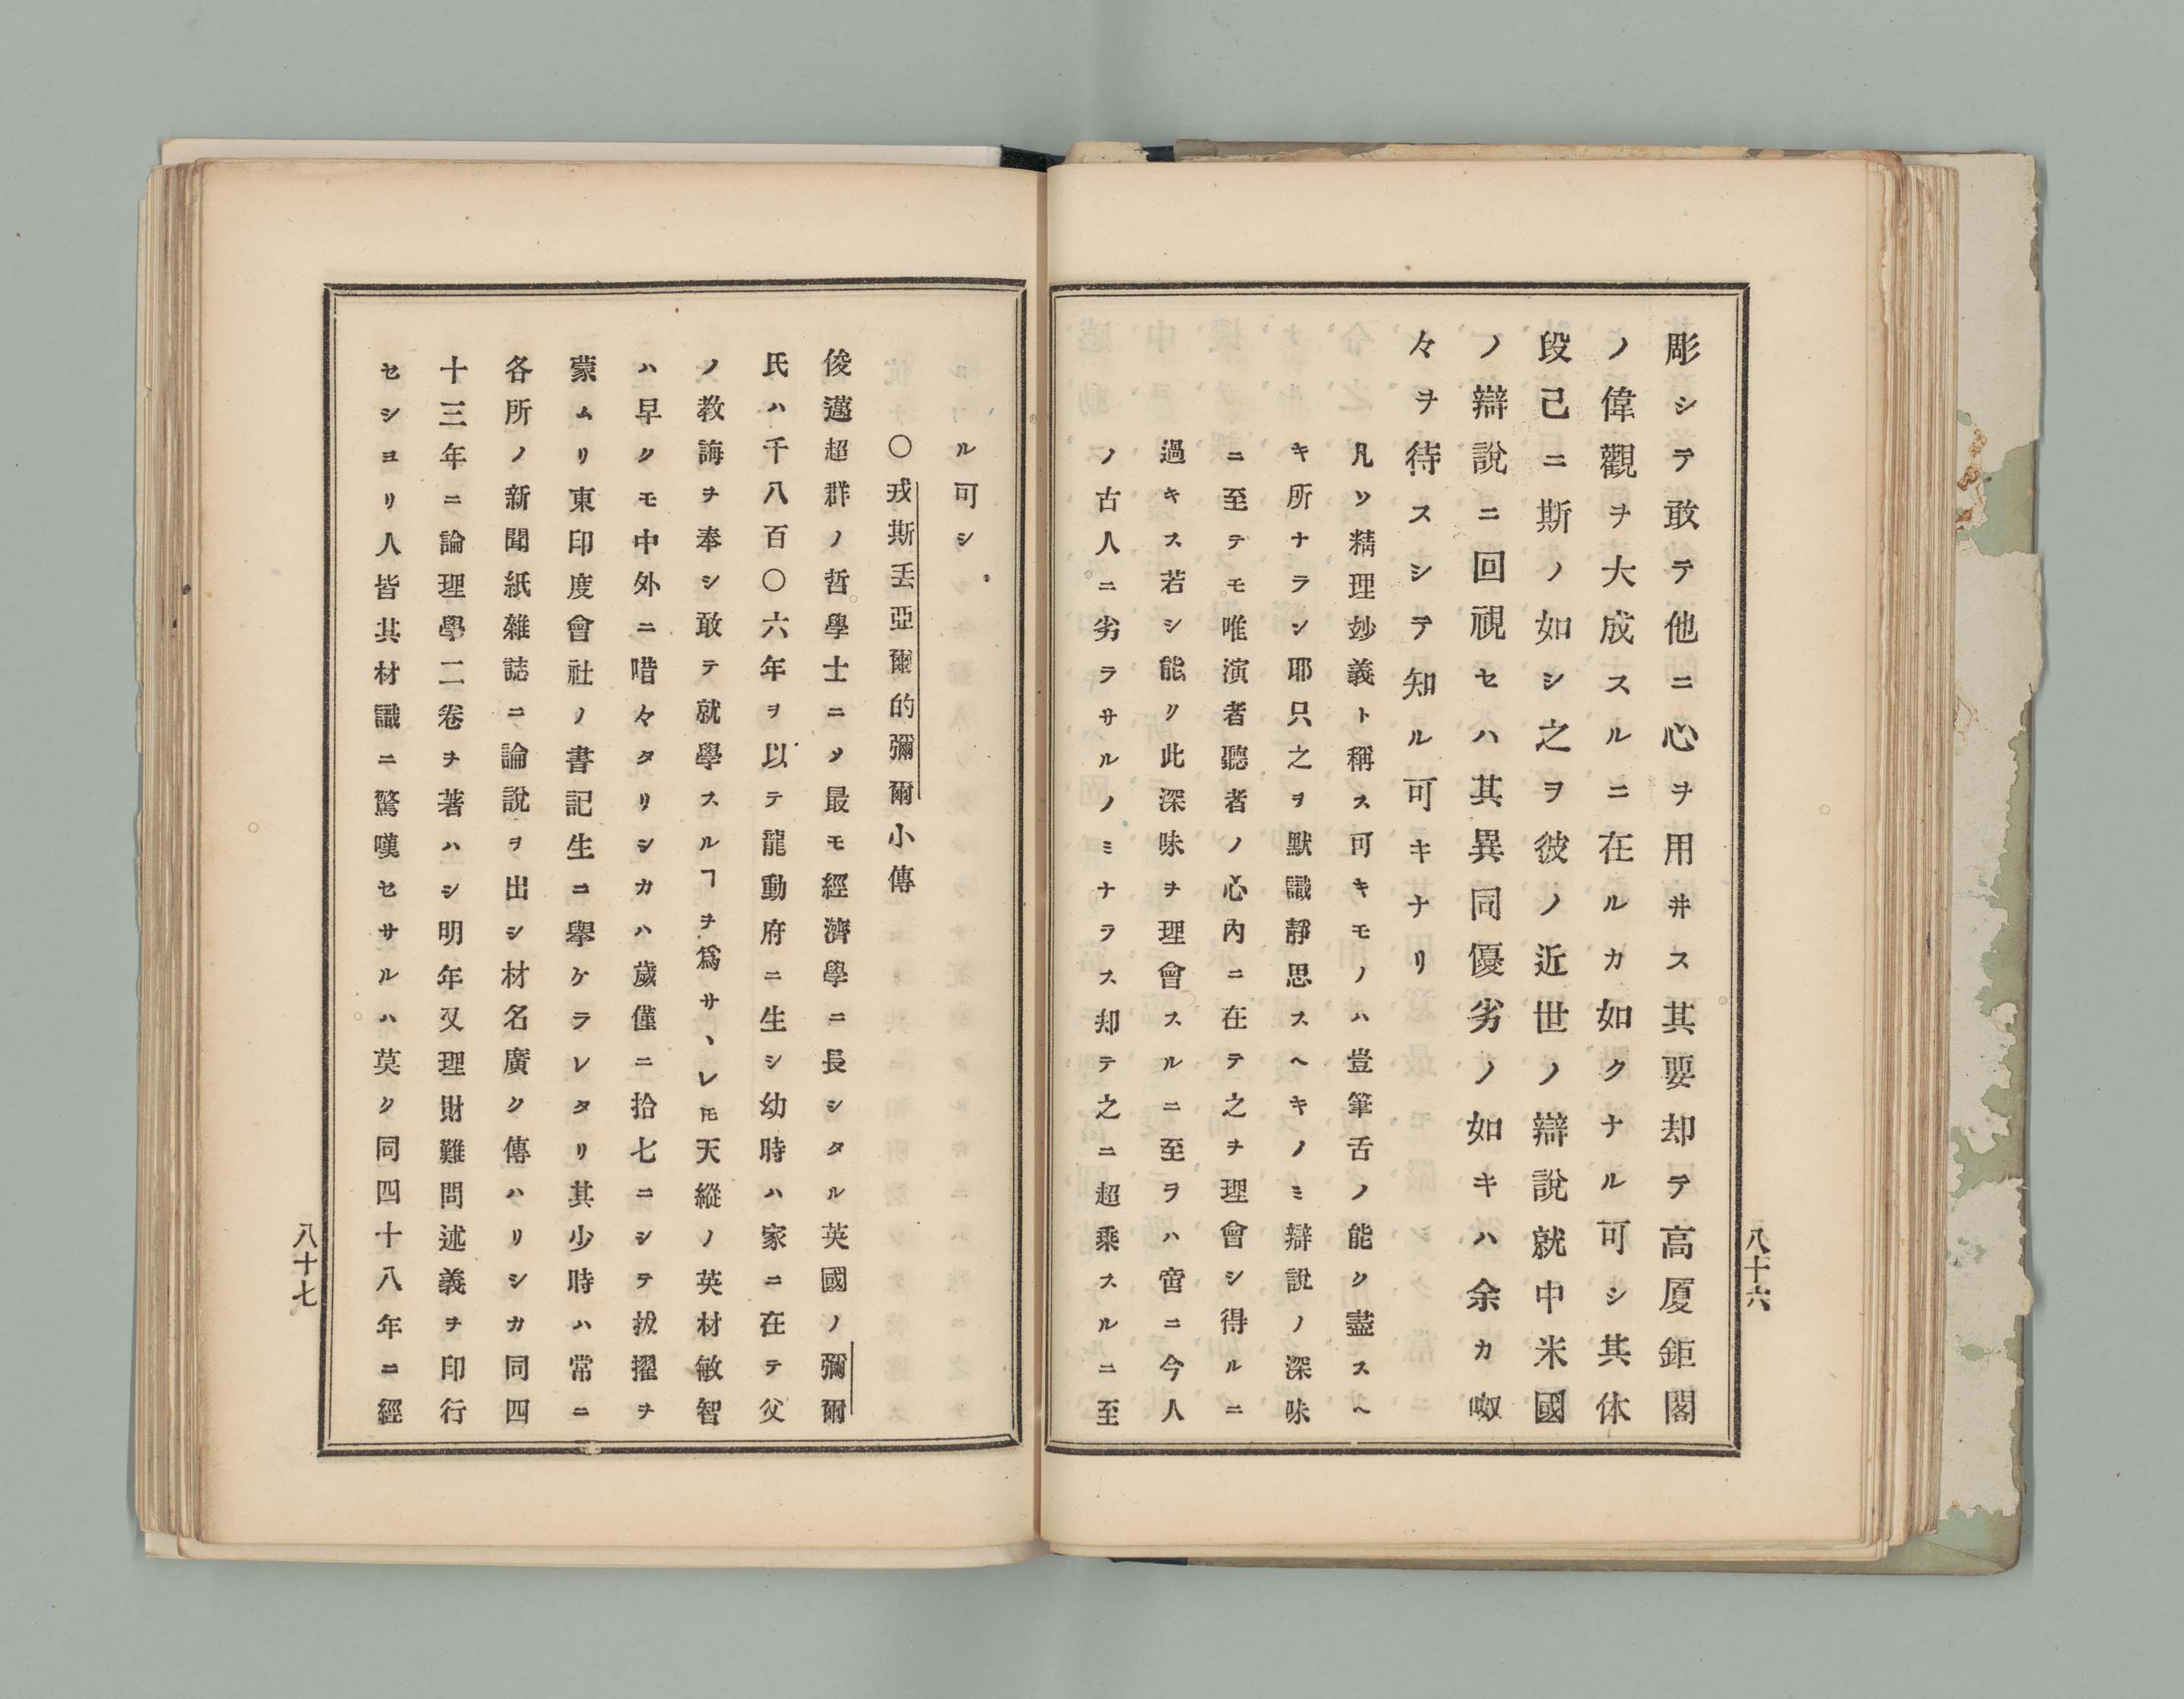 彫シテ敢テ他ニ心ヲ用ヰス其要却テ高厦鉅閣
ノ偉觀ヲ大成スルニ在ルカ如クナル可シ其体
段已ニ斯ノ如シ之ヲ彼ノ近世ノ辯說就中米國
ノ辯說ニ回視セハ其異同優劣ノ如キハ余カ呶
々ヲ待スシテ知ル可キナリ
凡ソ精理玅義ト稱ス可キモノハ豈筆舌ノ能ク盡スヘ
キ所ナラン耶只之ヲ默識靜思スヘキノミ辯說ノ深味
ニ至テモ唯演者聽者ノ心內ニ在テ之ヲ理會シ得ルニ
過キス若シ能ク此深味ヲ理會スルニ至ラハ啻ニ今人
ノ古人ニ劣ラサルノミナラス却テ之ニ超乘スルニ至
八十六
ル可シ
〇戎斯丟亞爾的彌爾小傳
俊邁超群ノ哲學士ニメ最モ經濟學ニ長シタル英國ノ彌爾
氏ハ千八百〇六年ヲ以テ龍動府ニ生シ幼時ハ家ニ在テ父
ノ教誨ヲ奉シ敢テ就學スルヿヲ爲サヽレ𪜈天縱ノ英材敏智
ハ早クモ中外ニ唶々タリシカハ歲僅ニ拾七ニシテ拔擢ヲ
蒙ムリ東印度會社ノ書記生ニ擧ケラレタリ其少時ハ常ニ
各所ノ新聞紙雜誌ニ論說ヲ出シ材名廣ク傳ハリシカ同四
十三年ニ論理學二卷ヲ著ハシ明年又理財難問述義ヲ印行
セシヨリ人皆其材識ニ驚嘆セサルハ莫ク同四十八年ニ經
八十七